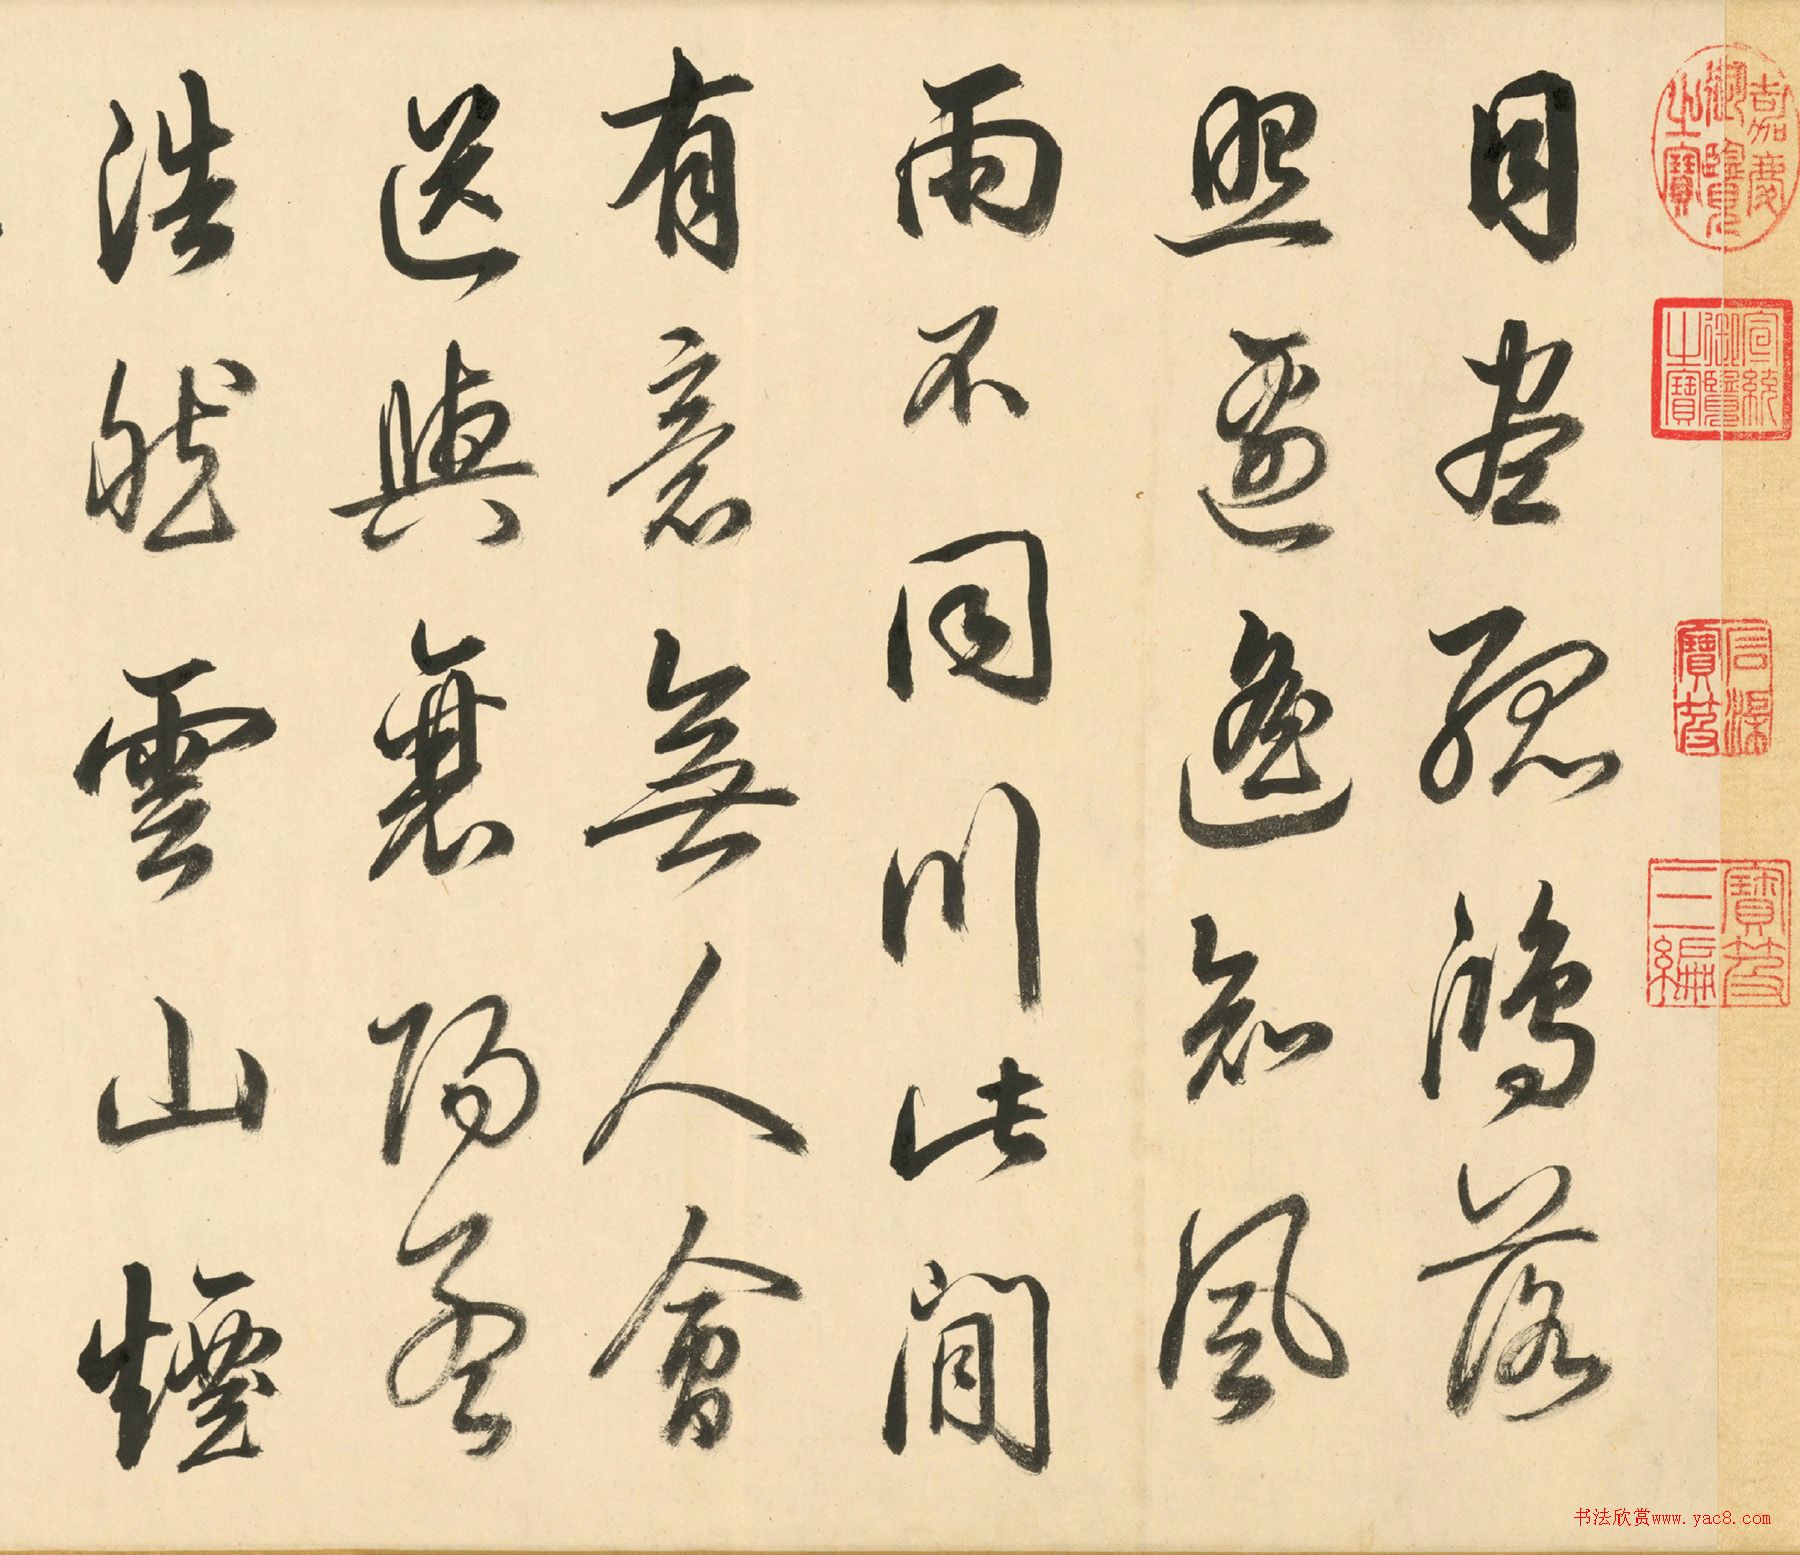 嘉慶御覽之寶
宣統御覽之寶
石渠寶笈
寶笈三編
目盡孤鴻落
照邊遙知風
雨不同川此閒
有意無人會
送與襄陽孟
浩然雲山煙
书法欣赏www.yac8.com